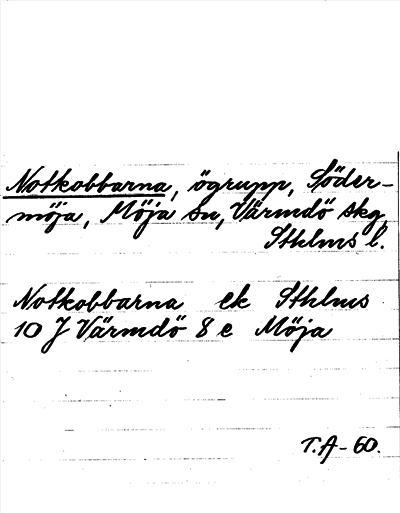 Notkobbarna, ögrupp, Söder-
möja, Möja sn, Värmdö skg,
Sthlms l.
Notkobbarna ek Sthlms
10 J Värmdö 8 e Möja
T.A-60.